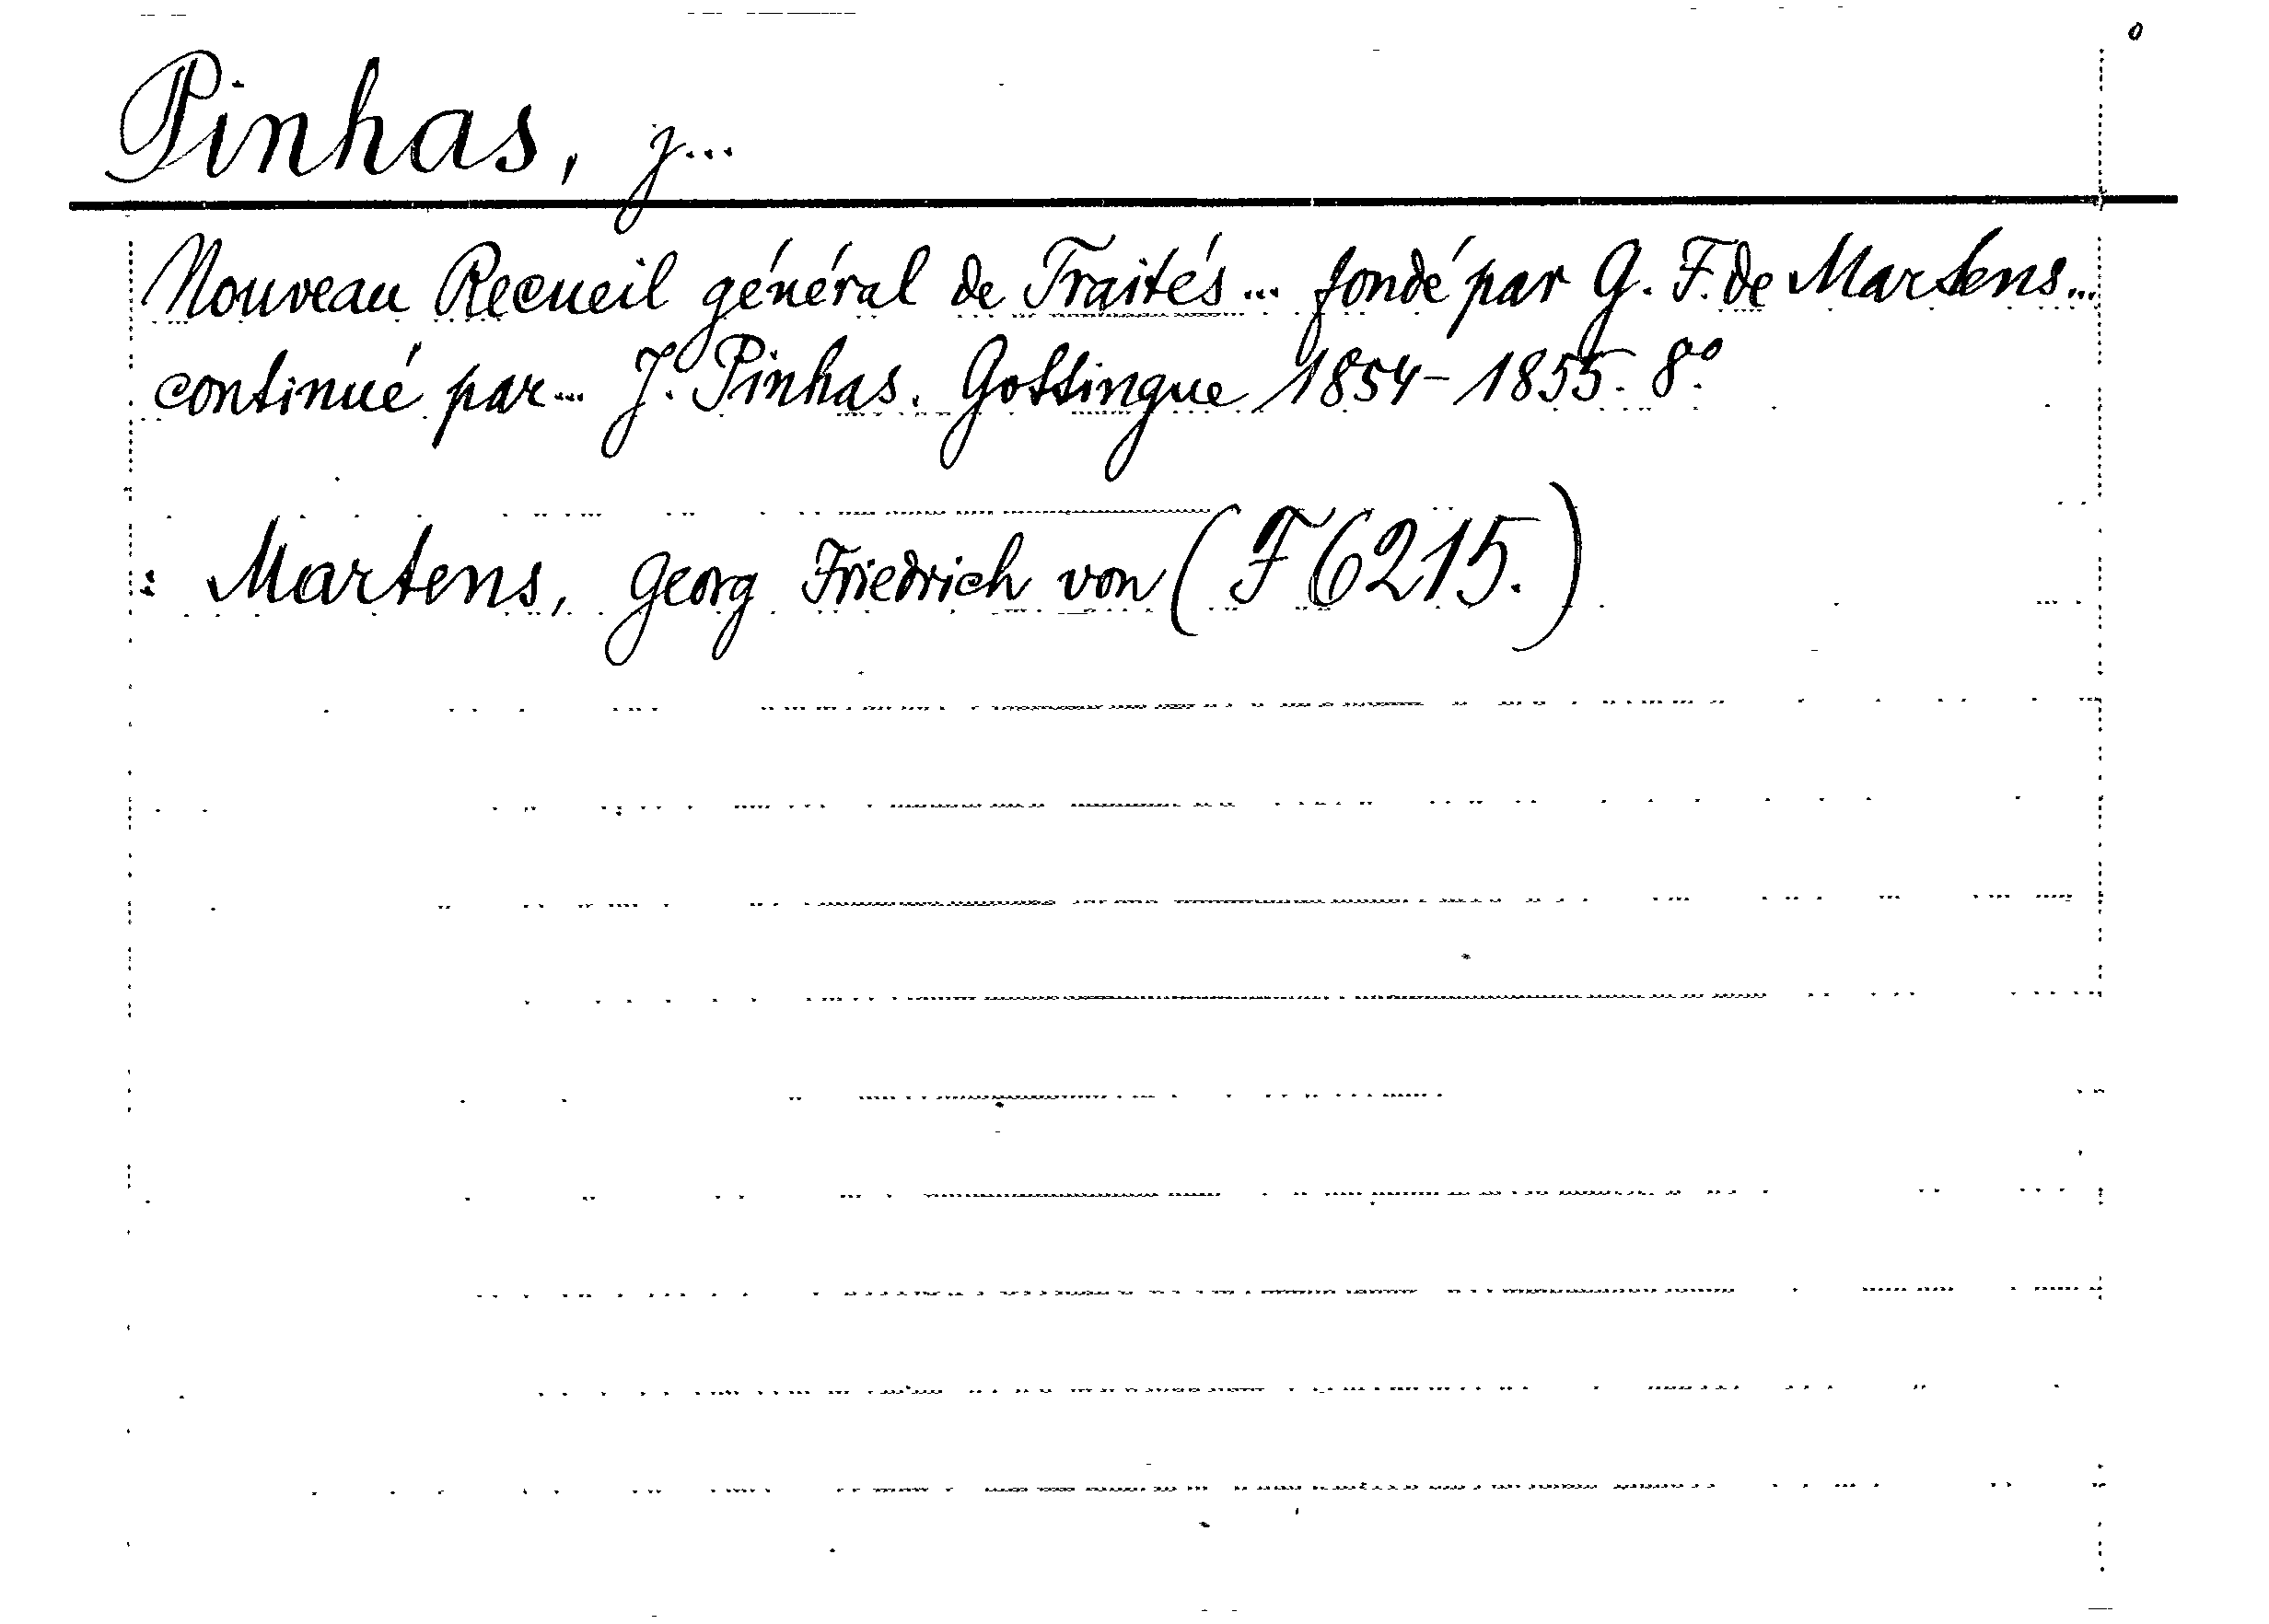 Pinhas, J...
Nouveau Recueil général de Traités... fondé par G. F. de Martens...
continué par... J. Pinhas. Gottingue 1854-1855. 8°
: Martens, Georg Friedrich von (F 6215.)